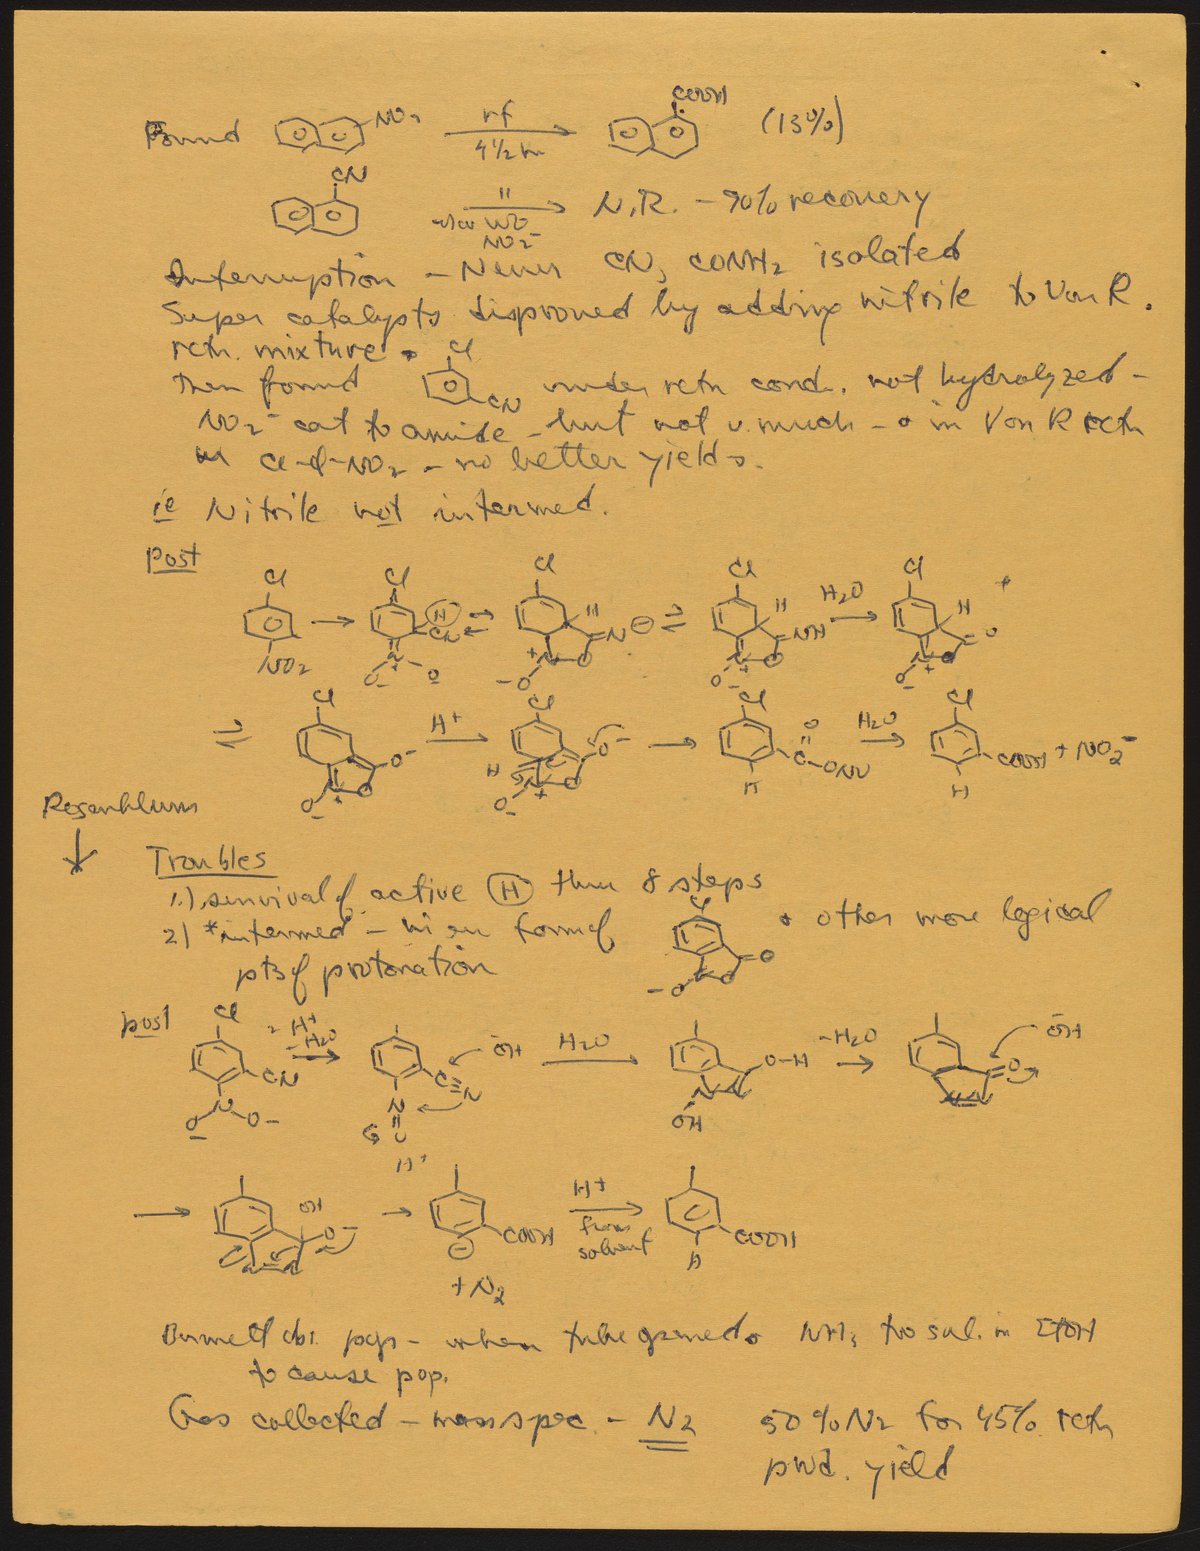 Found NO2 rf 4½ hr COOH (13%)
CN " w/or w/o NO2- N.R. - 90% recovery
Interruption - Never CN, CONH2 isolated
Super catalysts disproved by adding nitrile to Von R.
rctn. mixture.
Then found Cl CN under rctn cond. not hydrolyzed -
NO2- cat to amide - but not v. much - & in Von R rctn
Cl-φ-NO2 - no better yields.
ie Nitrile not intermed.
post
Cl Cl Cl Cl Cl *
H H H H2O H
CN N⊖ NH O
NO2 N+ O- O- N+ O -O N+ O O- N+ O O-
Cl H+ Cl Cl O H2O Cl
O- O- C-ONO COOH + NO2-
N+ O O- H N+ O O- H H
Rosenblum
Troubles
1.) survival of active H thru 8 steps
2) *intermed - in form of Cl O N O -O & other more logical
pts of protonation
post Cl 2 H+ -H2O OH H2O O-H -H2O OH
CN C≡N O
N O- O- N O N N OH N=N
H+
OH O- COOH H+ from solvent COOH
N=N ⊖ H
+ N2
Bunnett obs. pops - when tube opened. NH3 too sol. in EtOH
to cause pop.
Gas collected - mass spec. - N2 50% N2 for 45% rctn
prod. yield